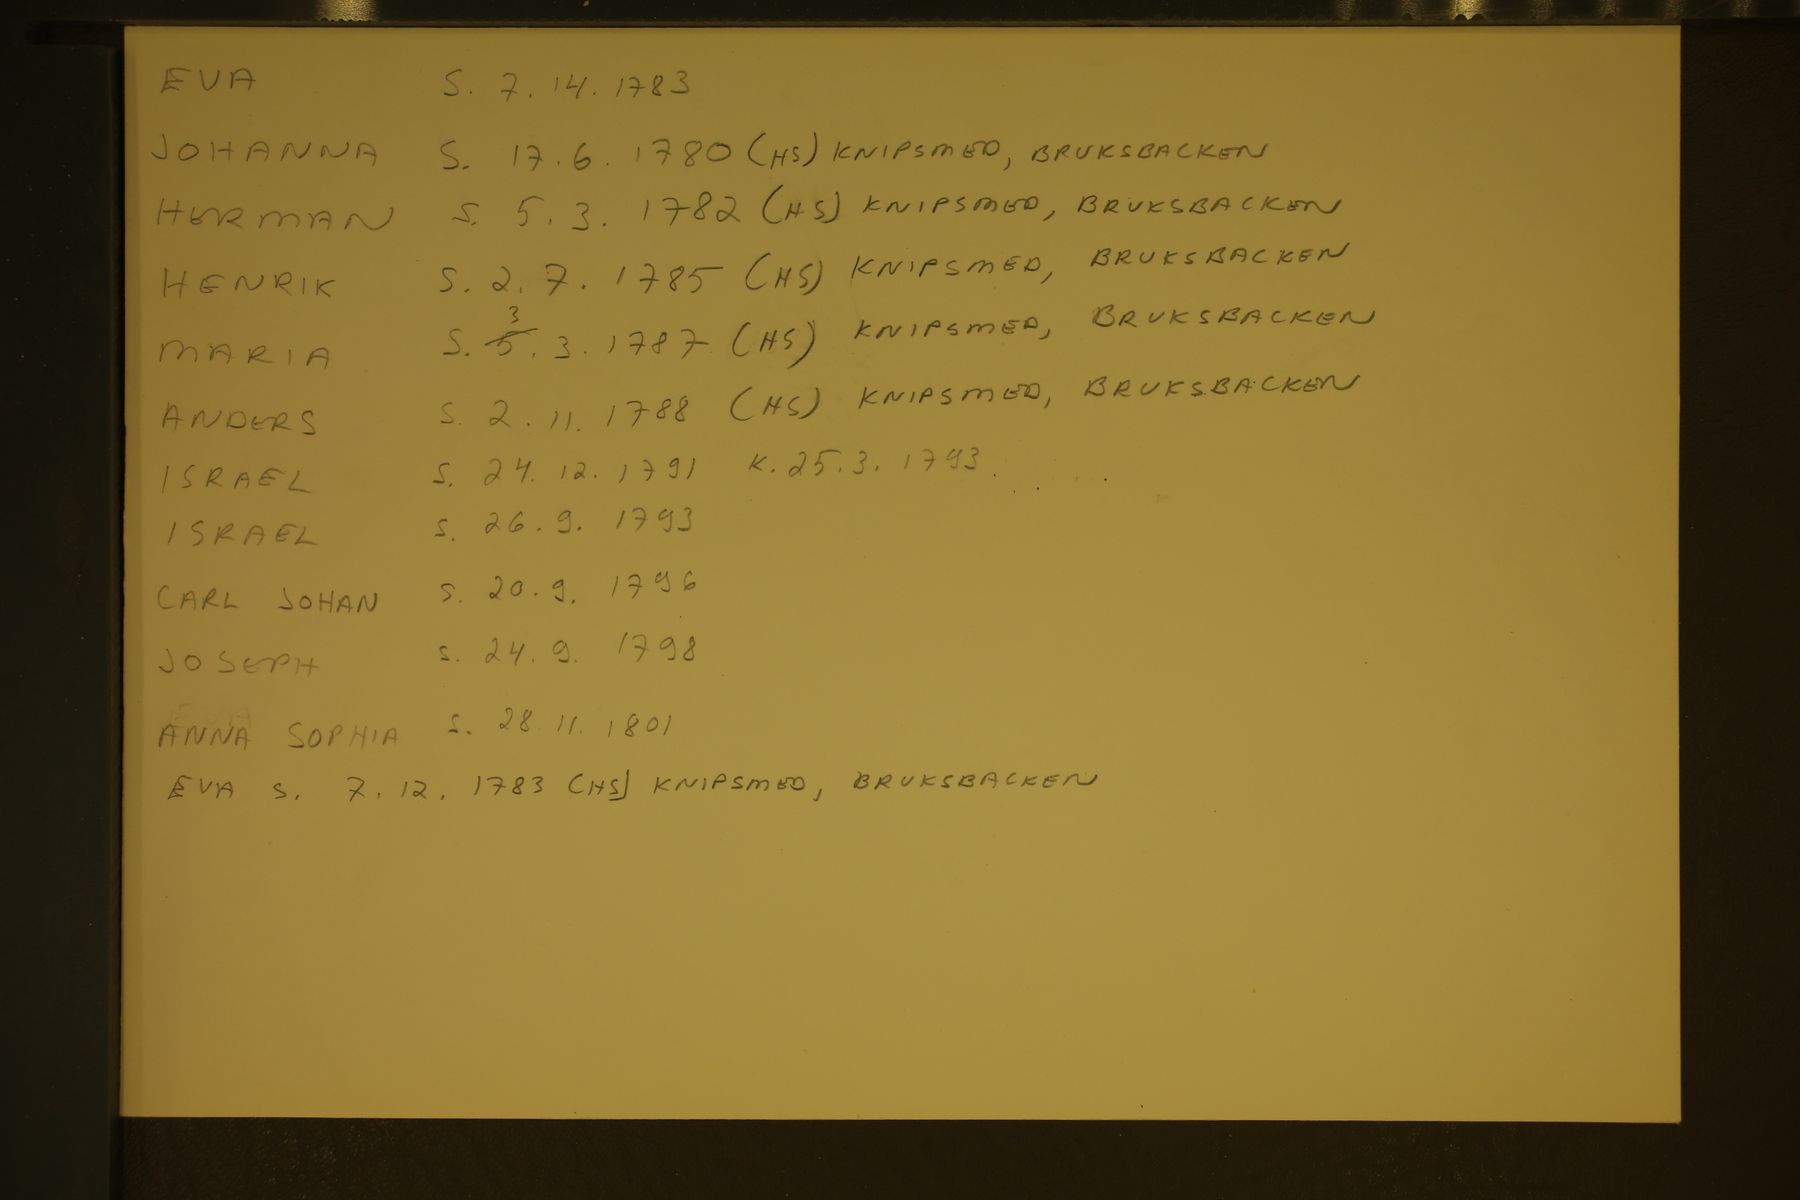 EVA S. 7.14.1783
JOHANNA S. 17.6.1780 (HS) KNIPSMED, BRUKSBACKEN
HERMAN S. 5.3.1782 (HS) KNIPSMED, BRUKSBACKEN
HENRIK S. 2.7.1785 (HS) KNIPSMED, BRUKSBACKEN
MARIA S. 3.3.1787 (HS) KNIPSMED, BRUKSBACKEN
ANDERS S. 2.11.1788 (HS) KNIPSMED, BRUKSBACKEN
ISRAEL S. 24.12.1791 K. 25.3.1793.
ISRAEL S. 26.9.1793
CARL JOHAN S. 20.9.1796
JOSEPH S. 24.9.1798
ANNA SOPHIA S. 28.11.1801
EVA S. 7.12.1783 (HS) KNIPSMED, BRUKSBACKEN